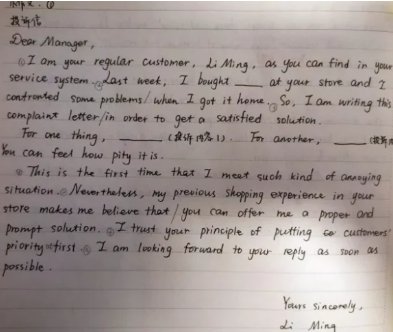 投诉信
Dear Manager,
① I am your regular customer, Li Ming, as you can find in your
service system. ② Last week, I bought ____ at your store and I
confronted some problems / when I got it home. ③ So, I am writing this
complaint letter / in order to get a satisfied solution.
For one thing, ______ (投诉内容1). For another, ____ (投诉
You can feel how pity it is.
④ This is the first time that I meet such kind of annoying
situation. ⑤ Nevertheless, my previous shopping experience in your
store makes me believe that / you can offer me a proper and
prompt solution. ⑥ I trust your principle of putting customers'
priority at first. ⑦ I am looking forward to your reply as soon as
possible.
Yours sincerely,
Li Ming